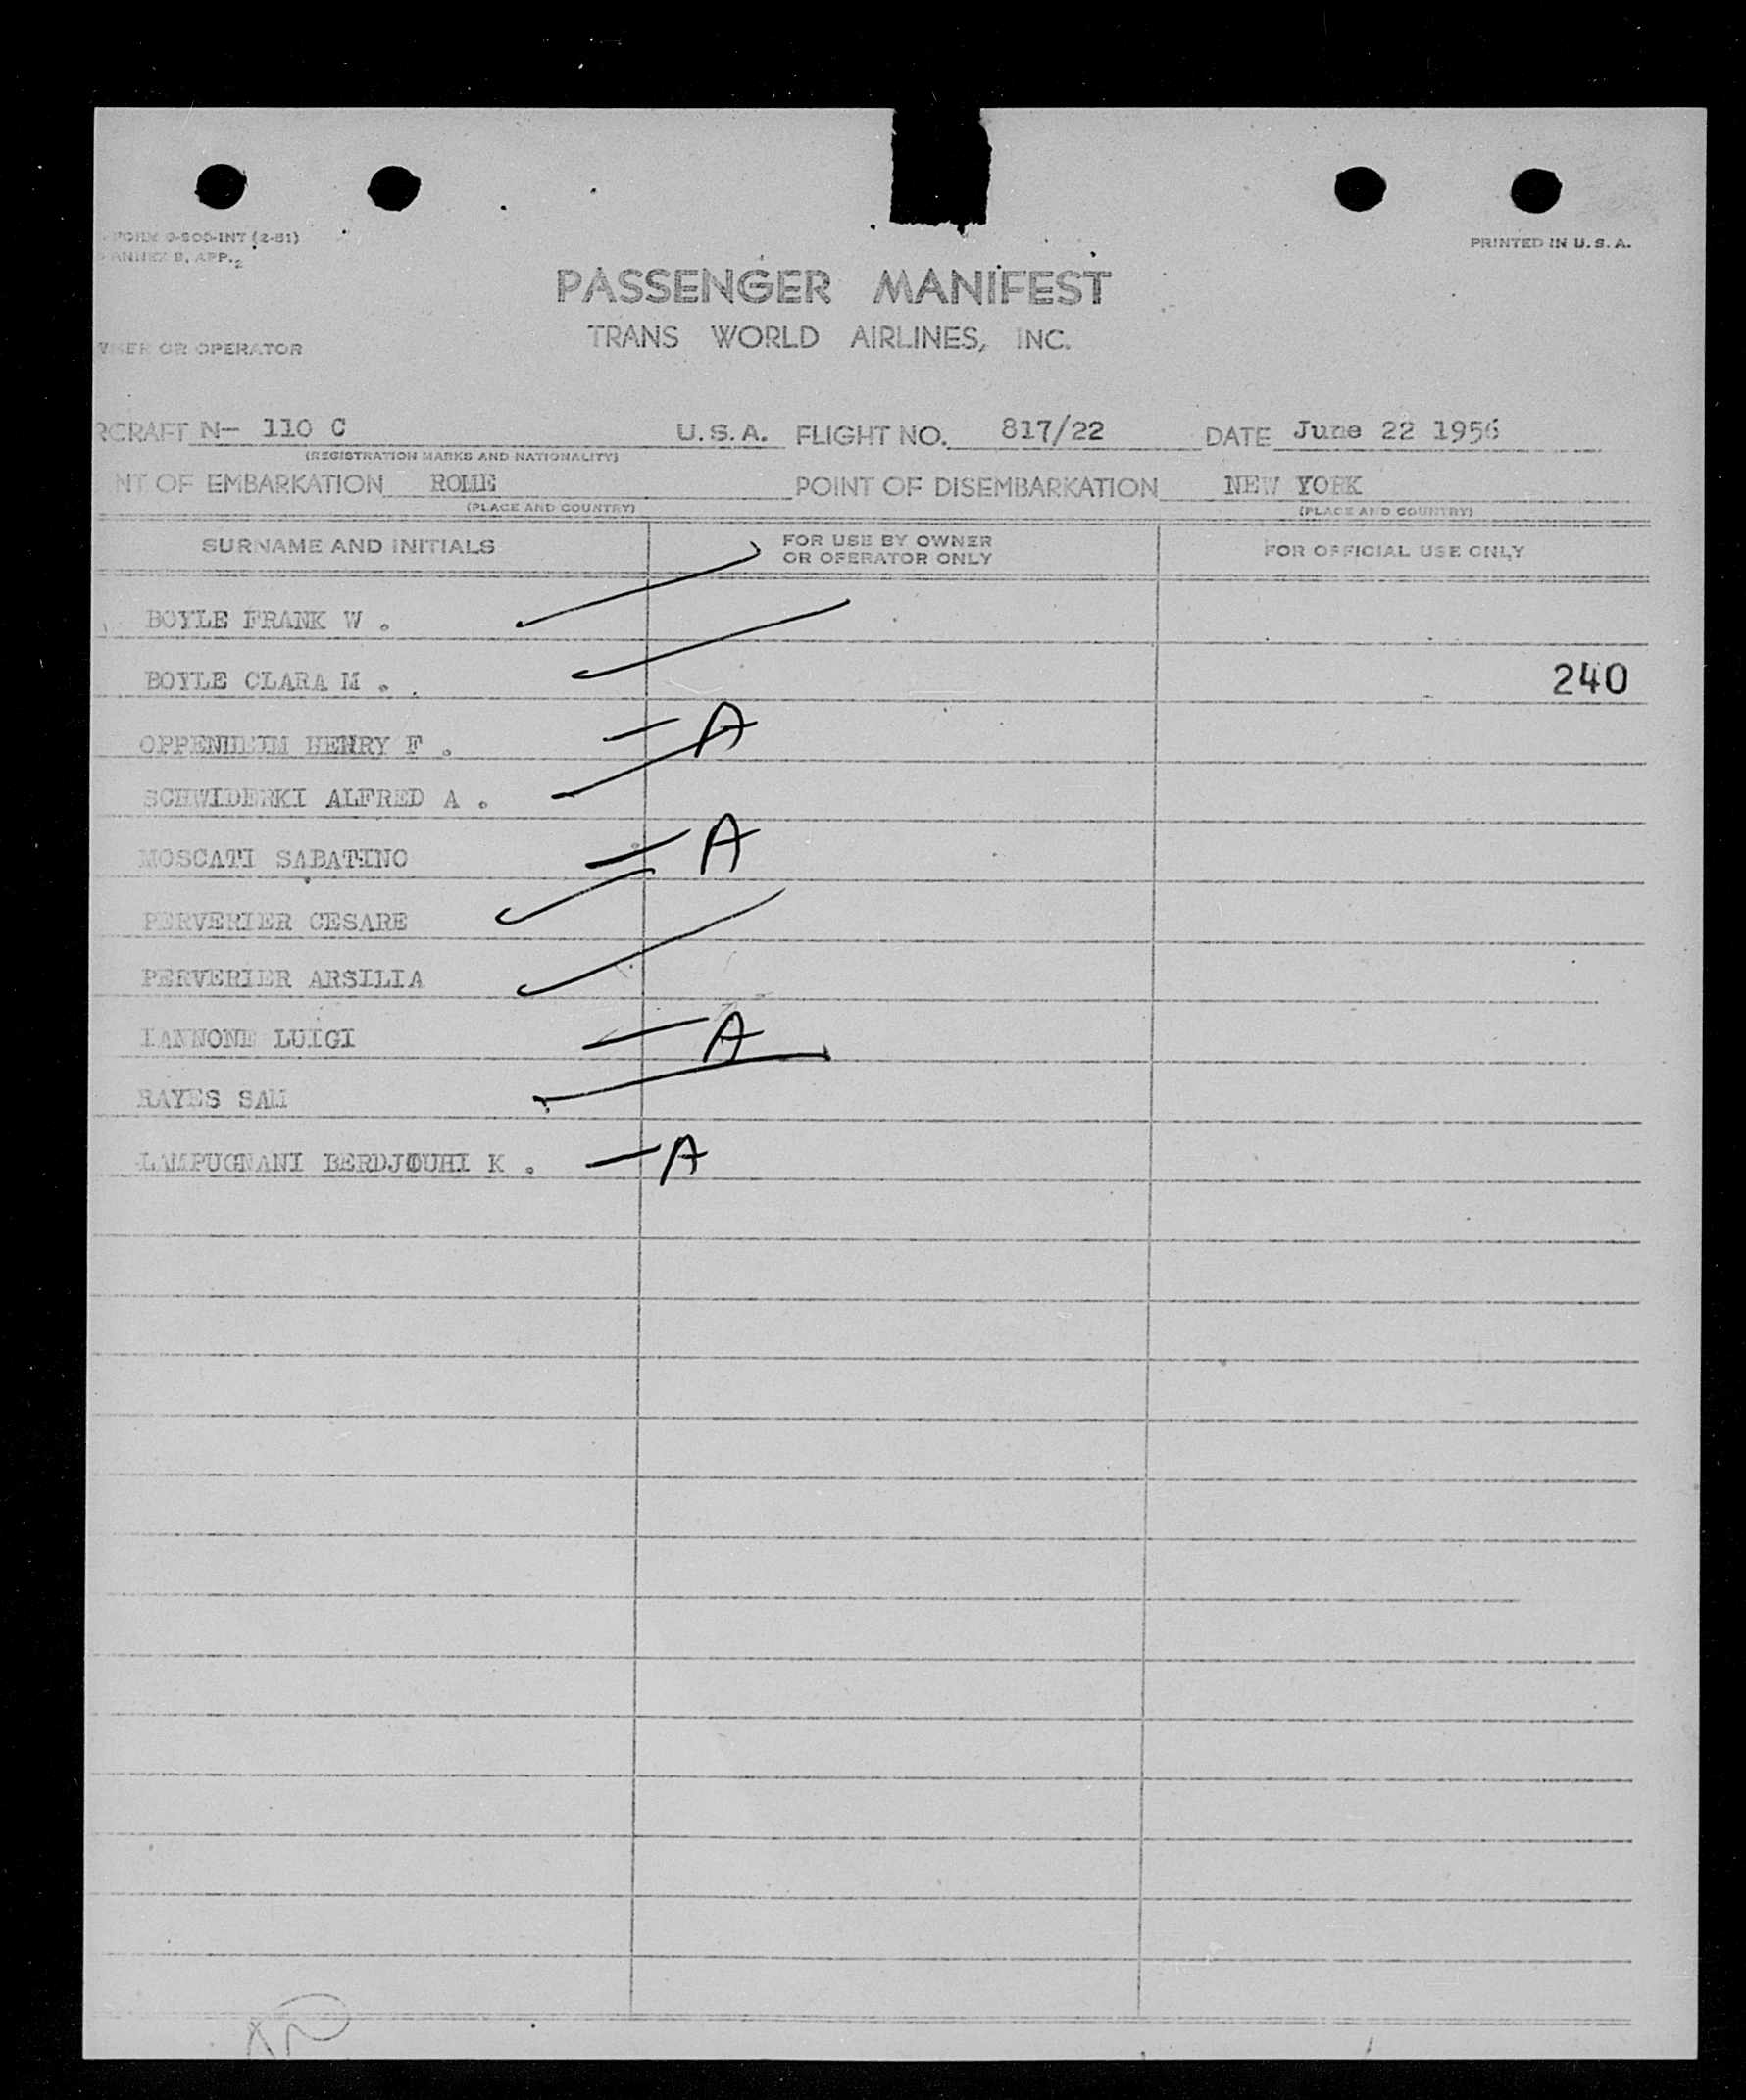 FORM 9-500-INT (2-51)
PRINTED IN U. S. A.
ANNEX 9, APP. 2
PASSENGER MANIFEST
TRANS WORLD AIRLINES, INC.
WNER OR OPERATOR
RCRAFT N- 110 C U. S. A. FLIGHT NO. 817/22 DATE June 22 1956
(REGISTRATION MARKS AND NATIONALITY)
NT OF EMBARKATION ROME POINT OF DISEMBARKATION NEW YORK
(PLACE AND COUNTRY) (PLACE AND COUNTRY)
SURNAME AND INITIALS FOR USE BY OWNER OR OPERATOR ONLY FOR OFFICIAL USE ONLY
BOYLE FRANK W .
BOYLE CLARA M . 240
OPPENHEIM HENRY F . A
SCHWIDERKI ALFRED A .
MOSCATI SABATINO A
PERVERIER CESARE
PERVERIER ARSILIA
IANNONE LUIGI A
RAYES SAM
LAMPUGNANI BERDJOUHI K . A